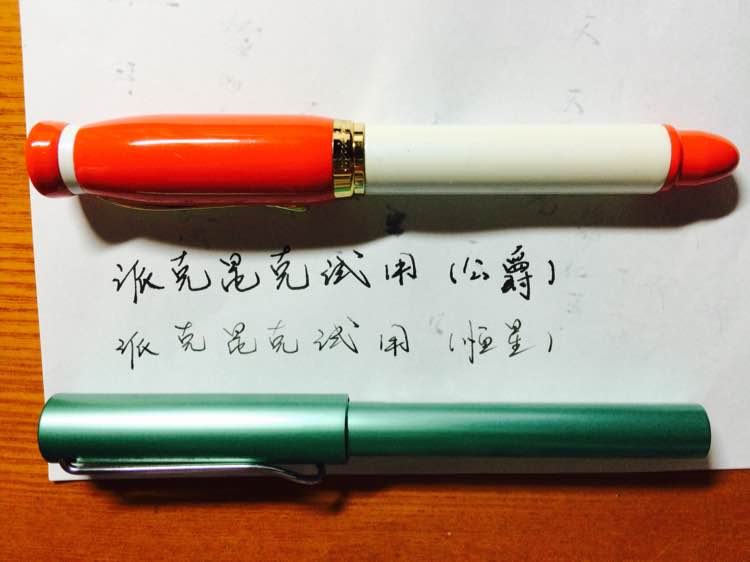 派克昆克试用（公爵）
派克昆克试用（恒星）